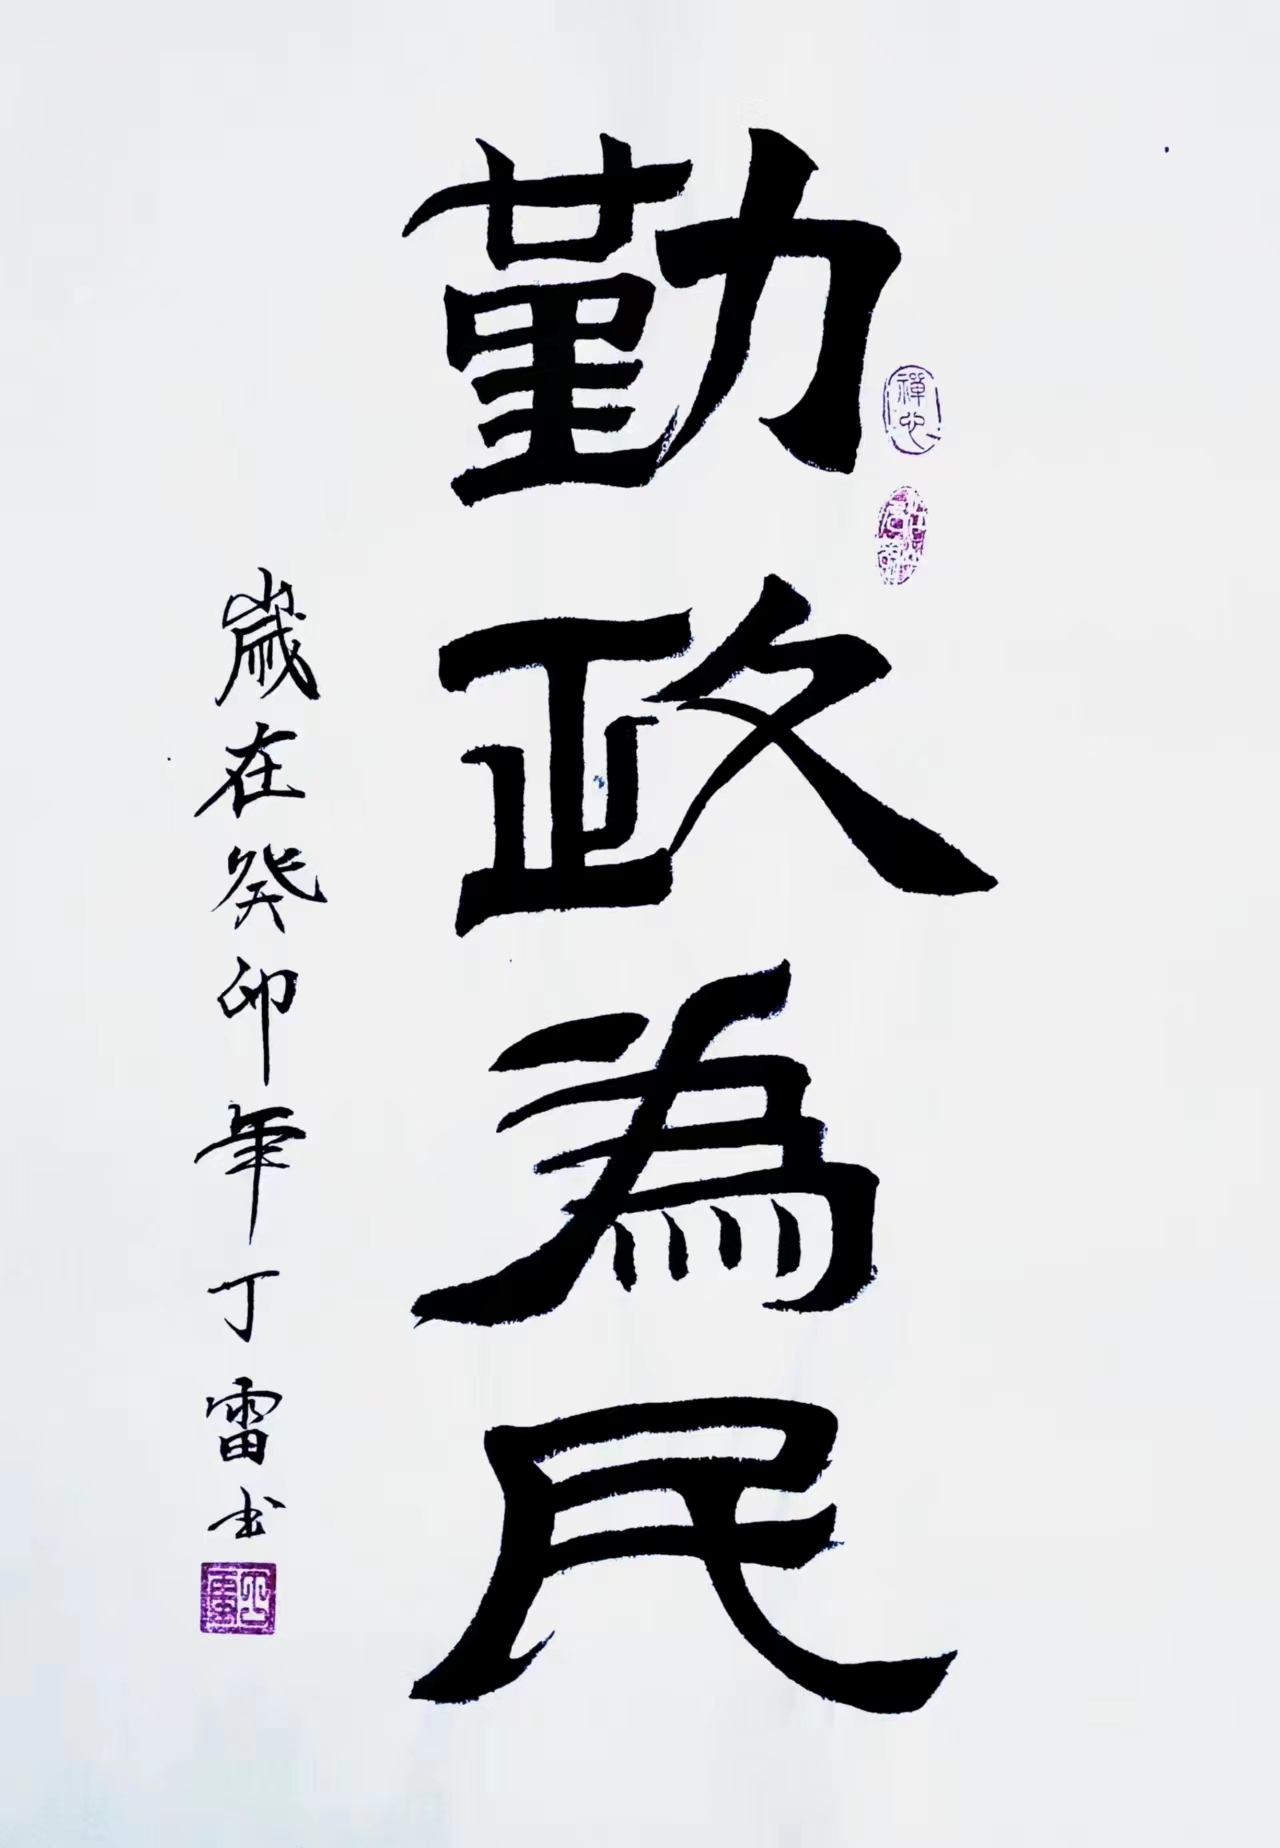 勤政為民
禅心
歲在癸卯年丁雷书